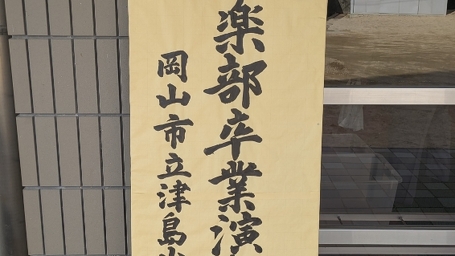 楽部卒業演
岡山市立津島